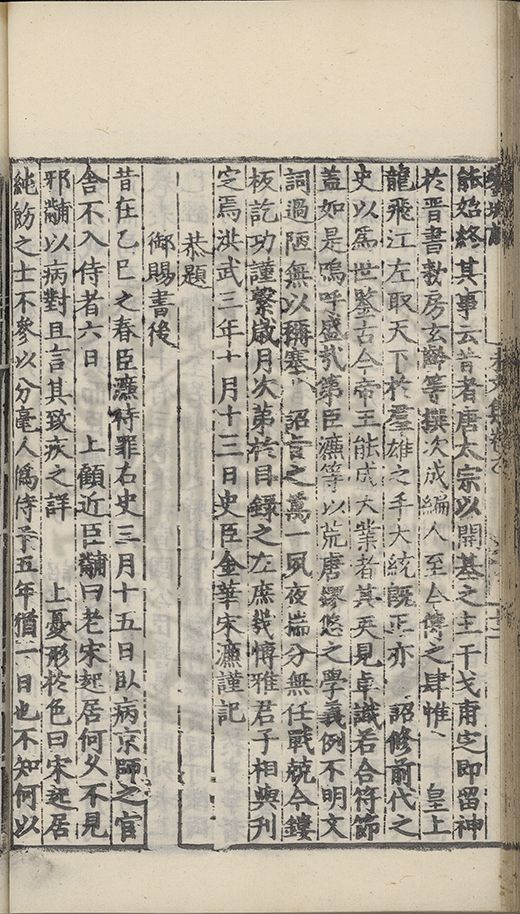 能始終其事云昔者唐太宗以開基之主干戈甫定即留神
於晉書敕房玄齡等撰次成編人至今傳之肆惟 皇上
龍飛江左取天下於羣雄之手大統既正亦 詔修前代之
史以為世鑒古今帝王能成大業者其英見卓識若合符節
蓋如是嗚呼盛哉第臣濂等以荒唐繆悠之學義例不明文
詞過陋無以稱塞 詔旨之萬一夙夜揣分無任戰兢今鏤
板訖功謹繫歲月次第於目錄之左庶幾博雅君子相與刊
定焉洪武三年十月十三日史臣金華宋濂謹記
恭題
御賜書後
昔在乙巳之春臣濂待罪右史三月十五日臥病京師之官
舍不入侍者六日 上顧近臣黼曰老宋起居何久不見
邪黼以病對且言其致疾之詳 上憂形於色曰宋起居
純飭之士不參以分毫人偽侍予五年猶一日也不知何以